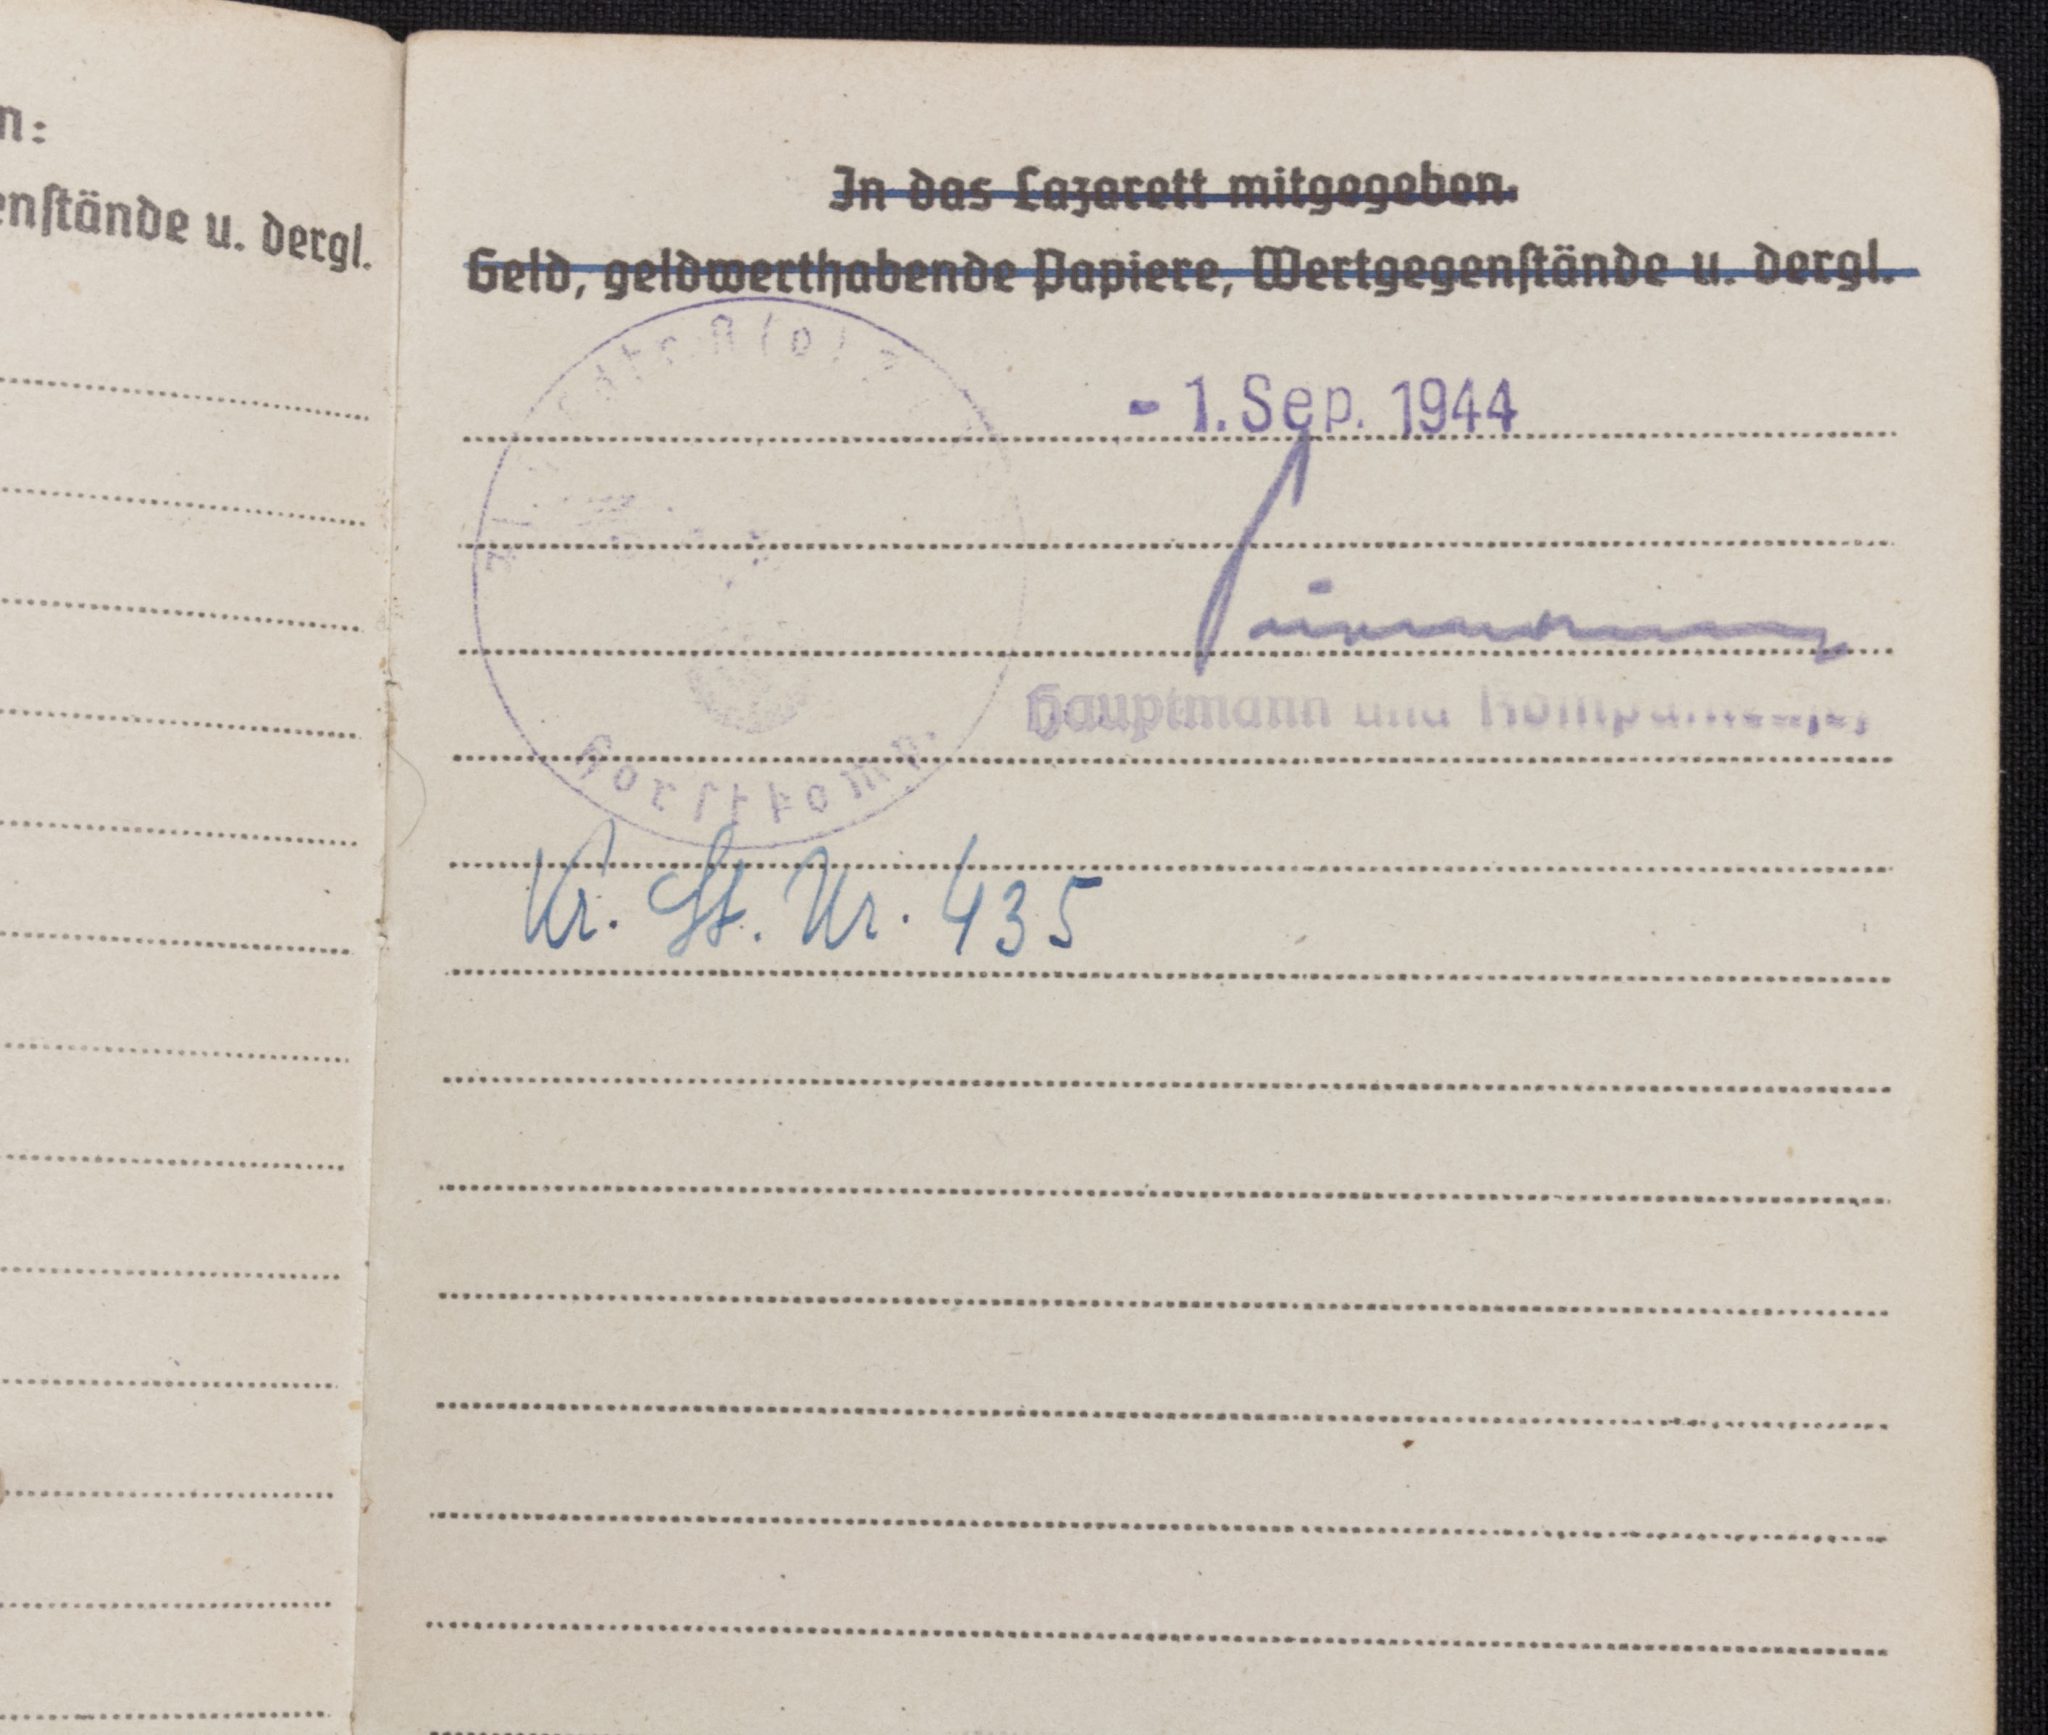 n:
enstände u. dergl.
In das Lazarett mitgegeben.
Geld, geldwerthabende Papiere, Wertgegenstände u. dergl.
- 1. Sep. 1944
Hauptmann und Kompaniechef
Horstkomp.
Kr. St. Nr. 435